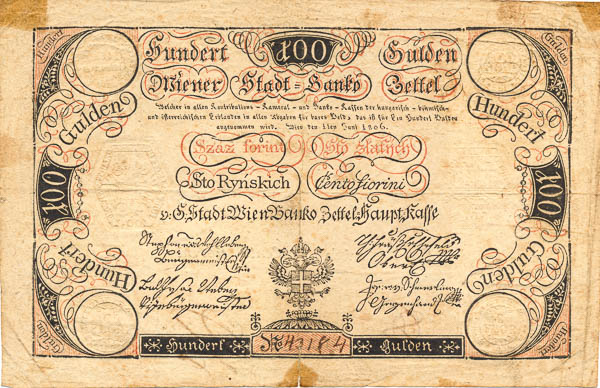 Hundert 100 Gulden
Wiener Stadt = Banko Zettel
Welcher in allen Kontributions = Kameral = und Banko = Kassen der hungarisch = böhmisch=
und österreichischen Erblanden in allen Abgaben für bares Geld, das ist für Ein Hundert Gulden
angenommen wird. Wien den 1ten Juny 1806.
Száz forint Sto zlatých
Sto Ryńskich Cento fiorini
v. G. Stadt Wien Banko Zettel Haupt Kasse
Hundert Nro 43184 Gulden
Gulden
Hundert
Hundert
Gulden
100
100
Hundert
Gulden
Gulden
Hundert